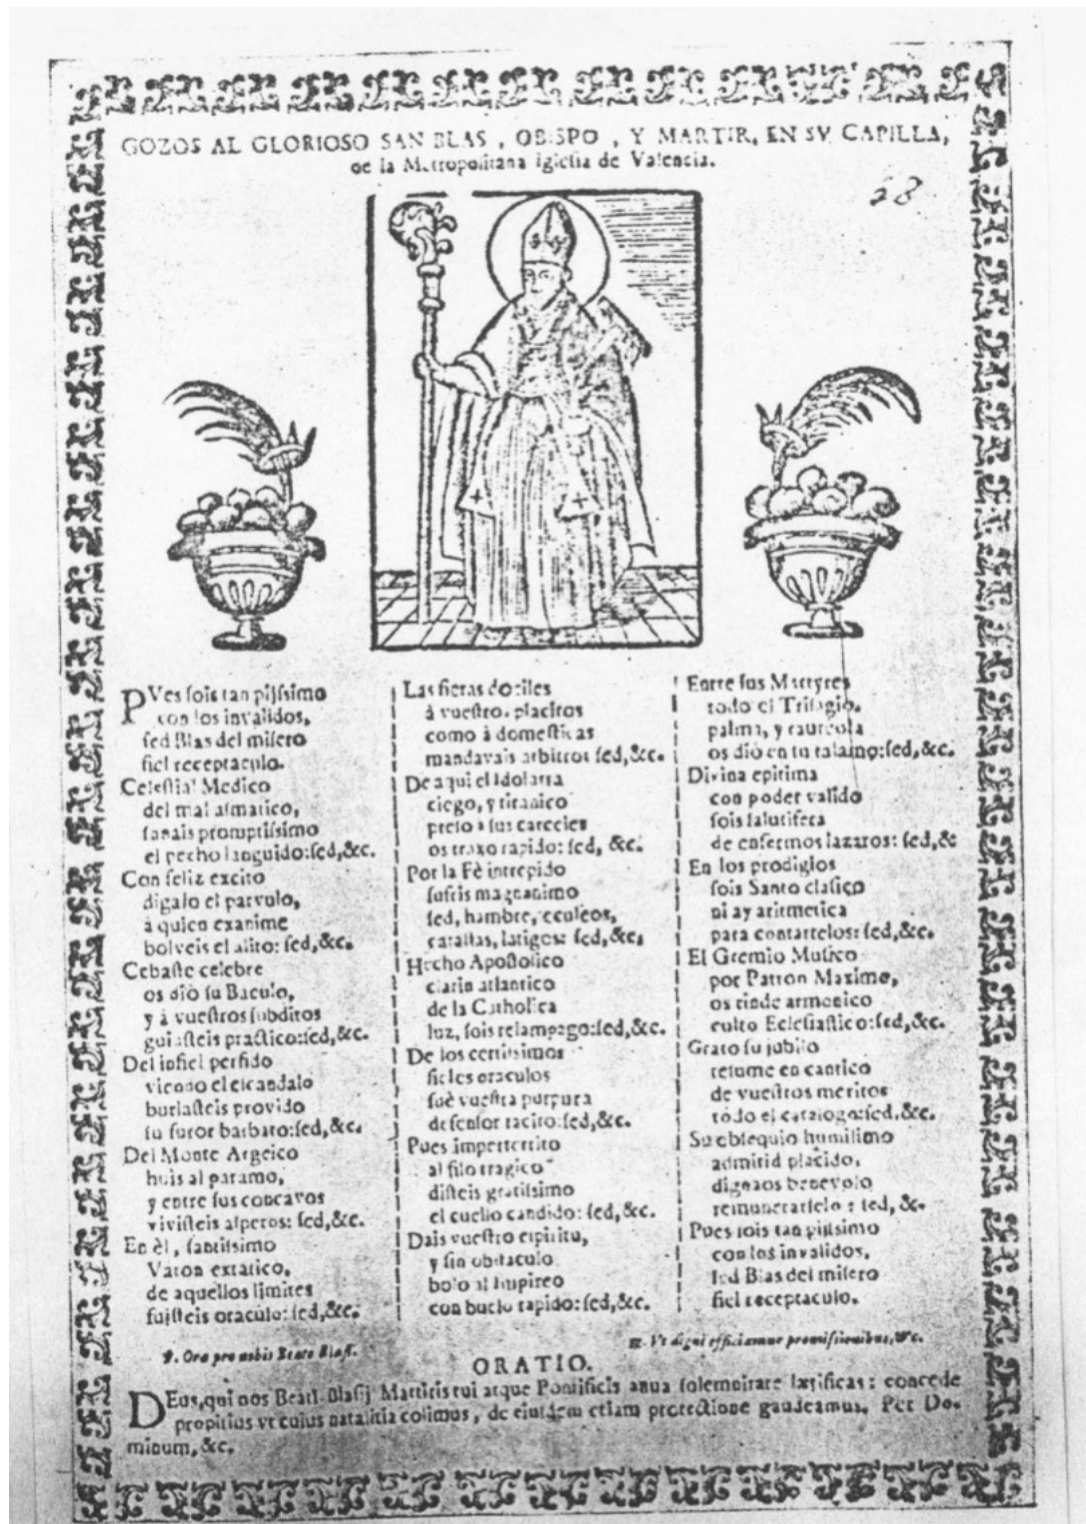 GOZOS AL GLORIOSO SAN BLAS, OBISPO, Y MARTIR, EN SV CAPILLA,
de la Metropolitana Iglesia de Valencia.
28
PVes sois tan pijssimo
con los invalidos,
sed Blas del misero
fiel receptaculo.
Celestial Medico
del mal asmatico,
sanais promptissimo
el pecho languido: sed, &c.
Con feliz excito
digalo el parvulo,
à quien exanime
bolveis el alito: sed, &c.
Cebaste celebre
os diò su Baculo,
y à vuestros subditos
guiasteis practico: sed, &c.
Del infiel perfido
viendo el escandalo
burlasteis provido
su furor barbaro: sed, &c.
Del Monte Argeico
huis al paramo,
y entre sus concavos
vivisteis asperos: sed, &c.
En èl, santissimo
Varon extatico,
de aquellos limites
fuisteis oraculo: sed, &c.
Las fieras dociles
à vuestro placitos
como à domesticas
mandavais arbitros sed, &c.
De aqui el Idolatra
ciego, y tiranico
preso a sus carceles
os traxo rapido: sed, &c.
Por la Fè intrepido
sufris magnanimo
sed, hambre, eculeos,
catastas, latigos: sed, &c,
Hecho Apostolico
clarin atlantico
de la Catholica
luz, sois relampago: sed, &c.
De los certissimos
fieles oraculos
fuè vuestra purpura
defensor tacito: sed, &c.
Pues imperterrito
al filo tragico
disteis gratissimo
el cuello candido: sed, &c.
Dais vuestro espiritu,
y sin obstaculo
bolo al Impireo
con buelo rapido: sed, &c.
Entre sus Martyres
todo el Trisagio,
palma, y laureola
os diò en tu talamo: sed, &c.
Divina epitima
con poder valido
sois salutifera
de enfermos lazaros: sed, &c
En los prodigios
sois Santo clasico
ni ay aritmetica
para contartelos: sed, &c.
El Gremio Musico
por Patron Maximo,
os rinde armonico
culto Eclesiastico: sed, &c.
Grato su jubilo
resume en cantico
de vuestros meritos
todo el catalogo: sed, &c.
Su obsequio humilimo
admitid placido,
dignaos benevolo
remunerarselo: sed, &c.
Pues sois tan pijssimo
con los invalidos,
sed Blas del misero
fiel receptaculo.
℣. Ora pro nobis Beate Blasi.
℟. Vt digni efficiamur promissionibus, &c.
ORATIO.
DEus, qui nos Beati Blasij Martiris tui atque Pontificis anua solemnitate lætificas: concede
propitius vt cuius natalitia colimus, de eiusdem etiam protectione gaudeamus. Per Do-
minum, &c.